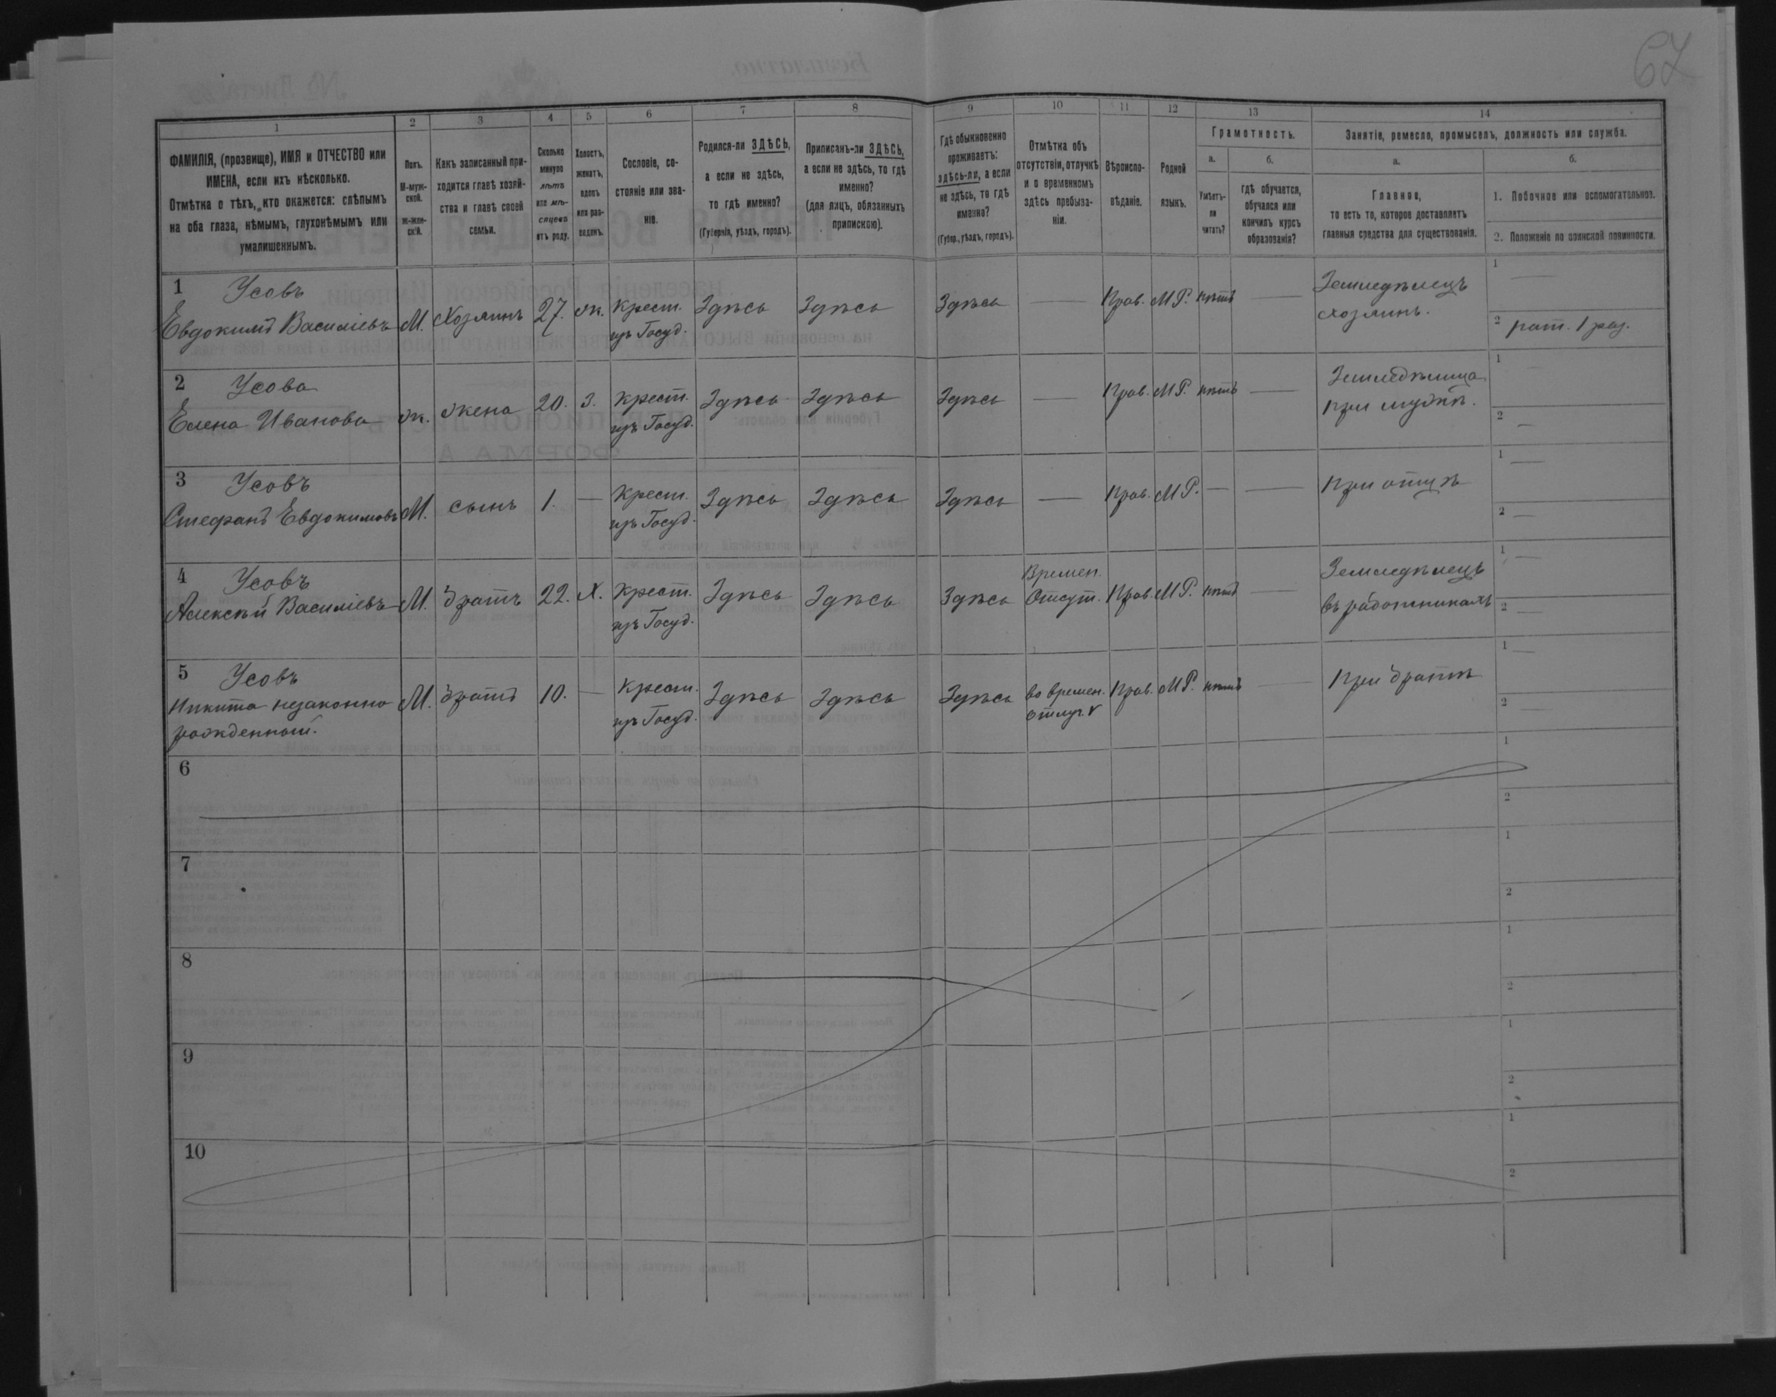 67
1
2
3
4
5
6
7
8
9
10
11
12
13
14
ФАМИЛІЯ, (прозвище), ИМЯ и ОТЧЕСТВО или
ИМЕНА, если ихъ нѣсколько.
Отмѣтка о тѣхъ, кто окажется: слѣпымъ
на оба глаза, нѣмымъ, глухонѣмымъ или
умалишеннымъ.
Полъ.
М-муж-
ской.
Ж-жен-
скій.
Какъ записанный при-
ходится главѣ хозяй-
ства и главѣ своей
семьи.
Сколько
минуло
лѣтъ
или мѣ-
сяцевъ
отъ роду.
Холостъ,
женатъ,
вдовъ
или раз-
веденъ.
Сословіе, со-
стояніе или зва-
ніе.
Родился-ли ЗДѢСЬ,
а если не здѣсь,
то гдѣ именно?
(Губернія, уѣздъ, городъ).
Приписанъ-ли ЗДѢСЬ,
а если не здѣсь, то гдѣ
именно?
(для лицъ, обязанныхъ
припискою).
Гдѣ обыкновенно
проживаетъ:
здѣсь-ли, а если
не здѣсь, то гдѣ
именно?
(Губер., уѣздъ, городъ).
Отмѣтка объ
отсутствіи, отлучкѣ
и о временномъ
здѣсь пребыва-
ніи.
Вѣроиспо-
вѣданіе.
Родной
языкъ.
Грамотность.
а.
Умѣетъ-
ли
читать?
б.
гдѣ обучается,
обучался или
кончилъ курсъ
образованія?
Занятіе, ремесло, промыселъ, должность или служба.
а.
Главное,
то есть то, которое доставляетъ
главныя средства для существованія.
б.
1. Побочное или вспомогательное.
2. Положеніе по воинской повинности.
1 Усовъ
Евдокимъ Василіевъ М. Хозяинъ 27. ж. Крест. изъ Госуд. Здѣсь Здѣсь Здѣсь — Прав. М.Р. нѣтъ — Земледѣлецъ хозяинъ. 1 — 2 рат. 1 раз.
2 Усова
Елена Иванова ж. жена 20. З. Крест. изъ Госуд. Здѣсь Здѣсь Здѣсь — Прав. М.Р. нѣтъ — Земледѣлица при мужѣ. 1 — 2 —
3 Усовъ
Стефанъ Евдокимовъ М. сынъ 1. — Крест. изъ Госуд. Здѣсь Здѣсь Здѣсь — Прав. М.Р. — — При отцѣ 1 — 2 —
4 Усовъ
Алексѣй Василіевъ М. братъ 22. Х. Крест. изъ Госуд. Здѣсь Здѣсь Здѣсь Времен. Отсут. Прав. М.Р. нѣтъ — Земледѣлецъ въ работникахъ 1 — 2 —
5 Усовъ
Никита незаконно
рожденный. М. братъ 10. — Крест. изъ Госуд. Здѣсь Здѣсь Здѣсь во времен. отлуч. Прав. М.Р. нѣтъ — При братѣ 1 — 2 —
6 1 2
7 1 2
8 1 2
9 1 2
10 1 2